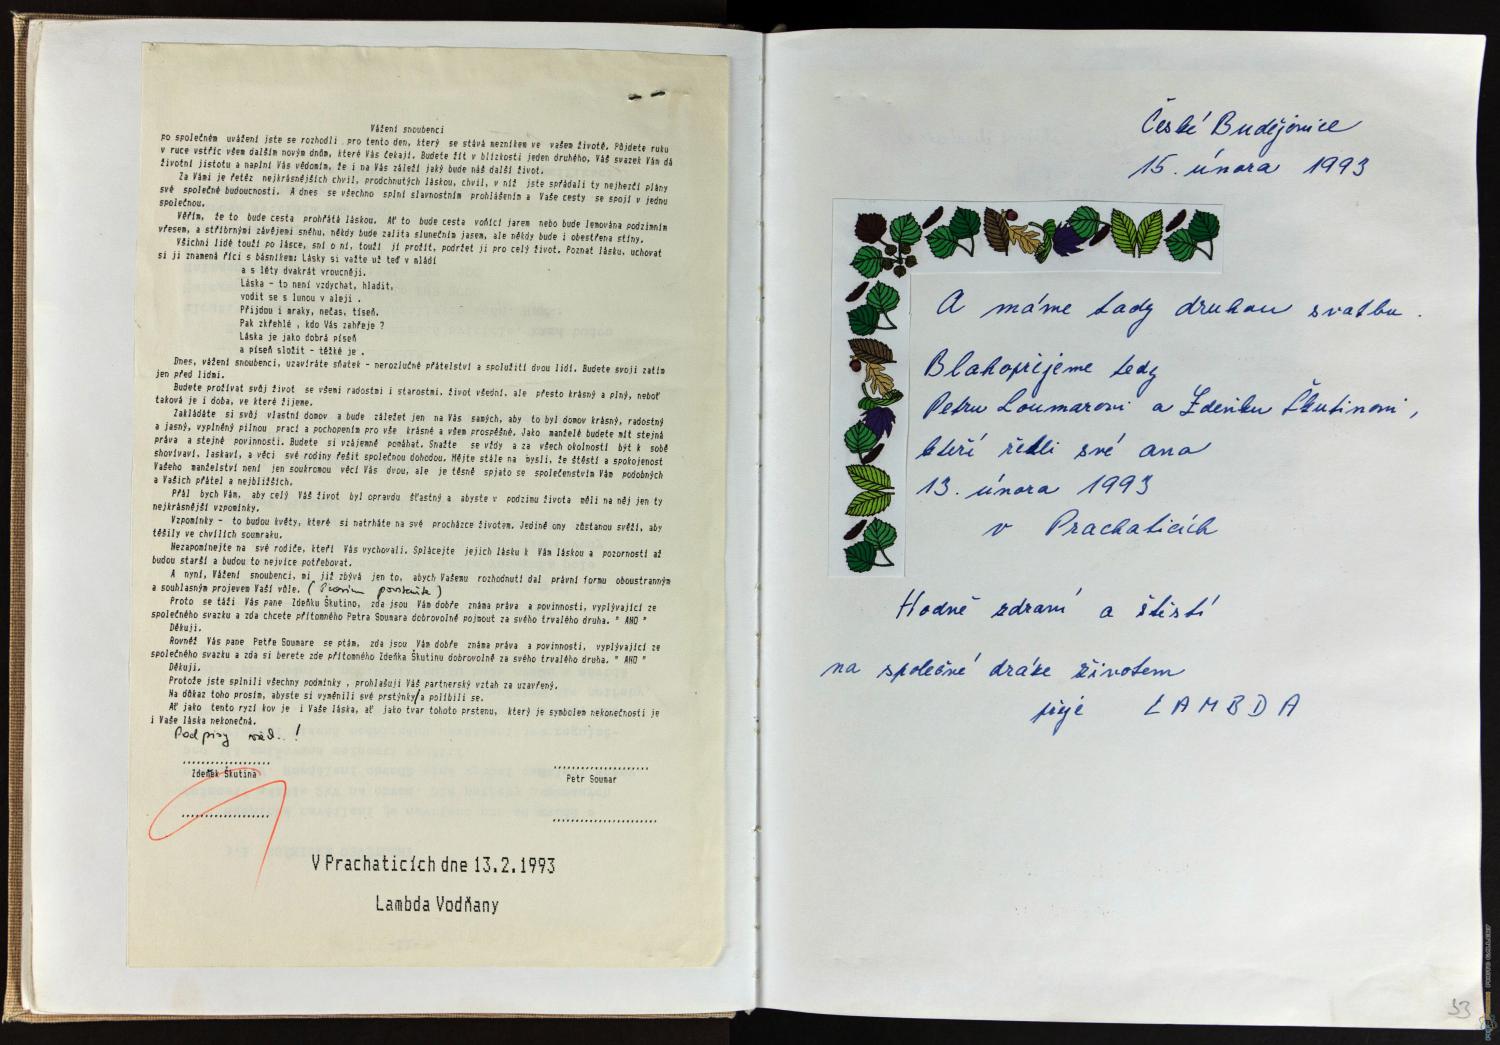 Vážení snoubenci
po společném uvážení jste se rozhodli pro tento den, který se stává mezníkem ve vašem životě. Půjdete ruku
v ruce vstříc všem dalším novým dnům, které Vás čekají. Budete žít v blízkosti jeden druhého, Váš svazek Vám dá
životní jistotu a naplní Vás vědomím, že i na Vás záleží jaký bude náš další život.
Za Vámi je řetěz nejkrásnějších chvil, prodchnutých láskou, chvil, v níž jste spřádali ty nejhezčí plány
své společné budoucnosti. A dnes se všechno splní slavnostním prohlášením a Vaše cesty se spojí v jednu
společnou.
Věřím, že to bude cesta prohřátá láskou. Ať to bude cesta vonící jarem nebo bude lemována podzimním
vřesem, a stříbrnými závějemi sněhu, někdy bude zalita slunečním jasem, ale někdy bude i obestřena stíny.
Všichni lidé touží po lásce, sní o ní, touží ji prožít, podržet ji pro celý život. Poznat lásku, uchovat
si ji znamená říci s básníkem: Lásky si važte už teď v mládí
a s léty dvakrát vroucněji.
Láska - to není vzdychat, hladit,
vodit se s lunou v aleji .
Přijdou i mraky, nečas, tíseň.
Pak zkřehlé , kdo Vás zahřeje ?
Láska je jako dobrá píseň
a píseň složit - těžké je .
Dnes, vážení snoubenci, uzavíráte sňatek - nerozlučné přátelství a spolužití dvou lidí. Budete svoji zatím
jen před lidmi.
Budete prožívat svůj život se všemi radostmi i starostmi. život všední, ale přesto krásný a plný, neboť
taková je i doba, ve které žijeme.
Zakládáte si svůj vlastní domov a bude záležet jen na Vás samých, aby to byl domov krásný, radostný
a jasný, vyplněný pilnou prací a pochopením pro vše krásné a všem prospěšné. Jako manželé budete mít stejná
práva a stejné povinnosti. Budete si vzájemně pomáhat. Snažte se vždy a za všech okolností být k sobě
shovívaví, laskaví, a věci své rodiny řešit společnou dohodou. Mějte stále na mysli, že štěstí a spokojenost
Vašeho manželství není jen soukromou věcí Vás dvou, ale je těsně spjato se společenstvím Vám podobných
a Vašich přátel a nejbližších.
Přál bych Vám, aby celý Váš život byl opravdu šťastný a abyste v podzimu života měli na něj jen ty
nejkrásnější vzpomínky.
Vzpomínky - to budou květy, které si natrháte na své procházce životem. Jedině ony zůstanou svěží, aby
těšily ve chvílích soumraku.
Nezapomínejte na své rodiče, kteří Vás vychovali. Splácejte jejich lásku k Vám láskou a pozorností až
budou starší a budou to nejvíce potřebovat.
A nyní, Vážení snoubenci, mi již zbývá jen to, abych Vašemu rozhodnutí dal právní formu oboustranným
a souhlasným projevem Vaší vůle. (Prosím povstaňte)
Proto se táži Vás pane Zdeňku Škutino, zda jsou Vám dobře známa práva a povinnosti, vyplývající ze
společného svazku a zda chcete přítomného Petra Soumara dobrovolně pojmout za svého trvalého druha. " ANO "
Děkuji.
Rovněž Vás pane Petře Soumare se ptám, zda jsou Vám dobře známa práva a povinnosti, vyplývající ze
společného svazku a zda si berete zde přítomného Zdeňka Škutinu dobrovolně za svého trvalého druha. " ANO "
Děkuji.
Protože jste splnili všechny podmínky , prohlašuji Váš partnerský vztah za uzavřený.
Na důkaz toho prosím, abyste si vyměnili své prstýnky/a políbili se.
Ať jako tento ryzí kov je i Vaše láska, ať jako tvar tohoto prstenu, který je symbolem nekonečnosti je
i Vaše láska nekonečná.
Podpisy !
Zdeněk Škutina
Petr Soumar
V Prachaticích dne 13.2.1993
Lambda Vodňany
České Budějovice
15. února 1993
A máme tady druhou svatbu.
Blahopřejeme tedy
Petru Soumarovi a Zdeňku Škutinovi,
kteří řekli své ano
13. února 1993
v Prachaticích
Hodně zdraví a štěstí
na společné dráze životem
přeje LAMBDA
33